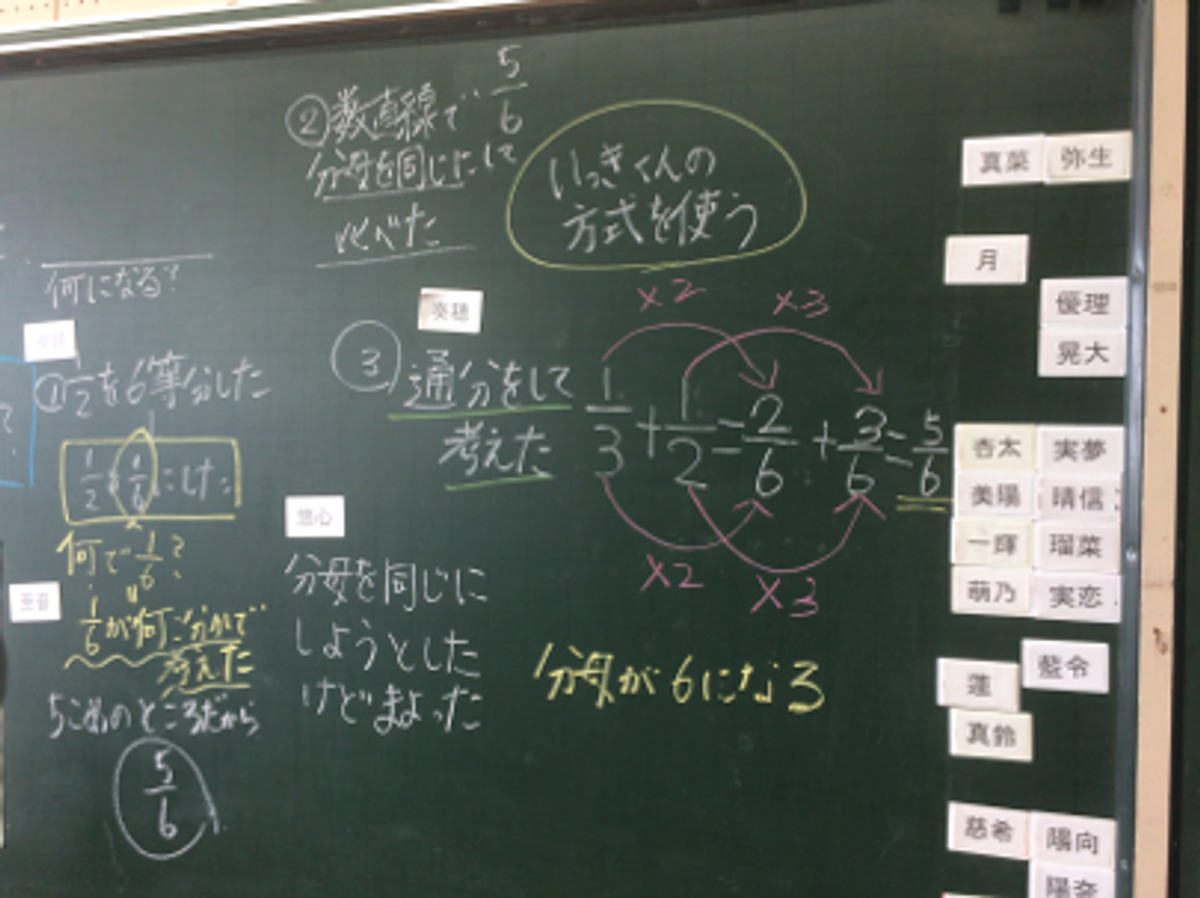 ②数直線で 5/6
分母を同じにして
比べた
いっきくんの
方式を使う
何になる?
①1/2を6等分した
1/2 1/6 にけた
何で1/6?
1/6が何こ分かで
考えた
5こめのところだから
5/6
悠心
分母を同じに
しようとした
けどまよった
葵穂
③通分をして
考えた
×2 ×3
1/3+1/2=2/6+3/6=5/6
×2 ×3
分母が6になる
真菜 弥生
月
優理
晃大
杏太 実夢
美陽 晴信
一輝 瑠菜
萌乃 実恋
藍令
蓮
真鈴
慈希 陽向
陽奈